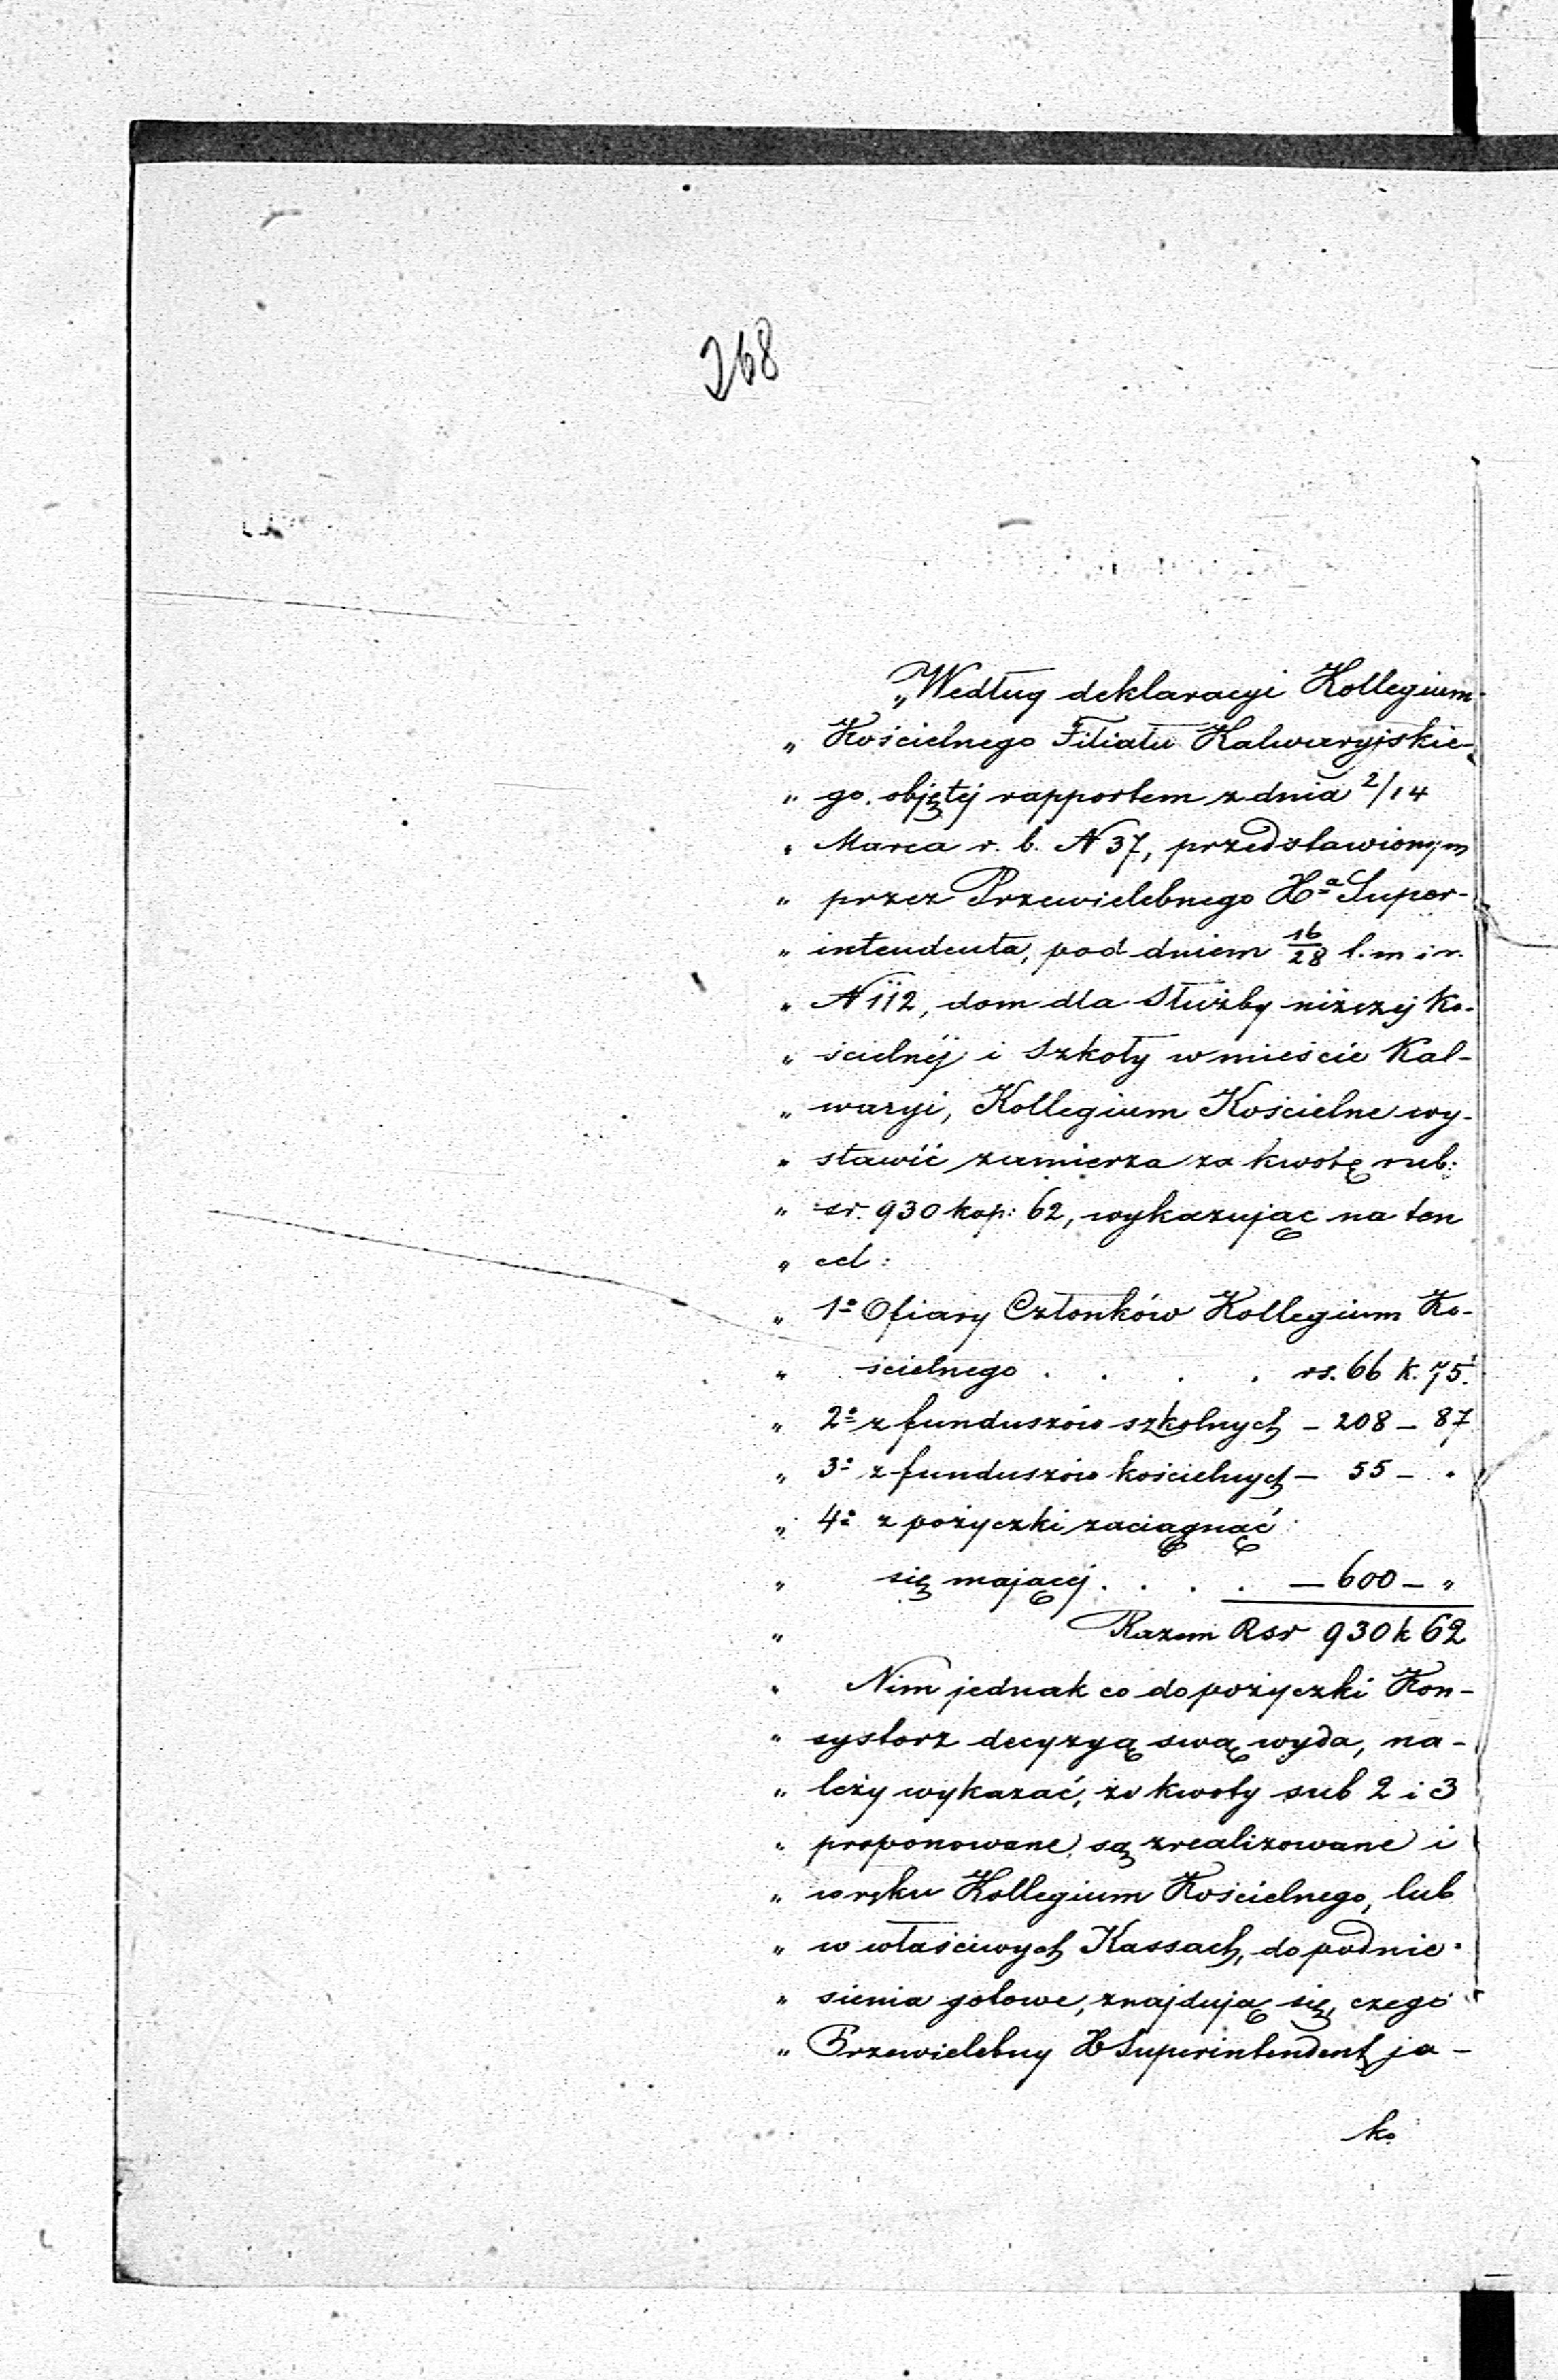 268
„Według deklaracyi Kollegium
„ Kościelnego Filiału Kalwaryjskie-
„ go objętej rapportem z dnia 2/14
„ Marca r. b. N 37, przedstawionym
„ przez Przewielebnego Xª Super-
„ intendenta, pod dniem 16/28 t. m i r.
„ N 112, dom dla Służby niższej Ko-
„ ścielnéj i Szkoły w mieście Kal-
„ waryi, Kollegium Kościelne wy-
„ stawić zamierza za kwotę rub:
„ sr. 930 kop: 62, wykazując na ten
„ cel:
„ 1º Ofiary Członków Kollegium Ko-
„ ścielnego . . . . rs. 66 k. 75.
„ 2º z funduszów szkolnych – 208 – 87
„ 3º z funduszów kościelnych – 55 – „
„ 4º z pożyczki zaciągnąć
„ się mającej . . . . – 600 – „
„ Razem Rsr 930 k 62
„ Nim jednak co do pożyczki Kon-
„ systorz decyzyą swą wyda, na-
„ leży wykazać, że kwoty sub 2 i 3
„ proponowane, są zrealizowane i
„ w ręku Kollegium Kościelnego, lub
„ w właściwych Kassach, do podnie-
„ sienia gotowe, znajdują się, czego
„ Przewielebny X Superintendent ja-
ko